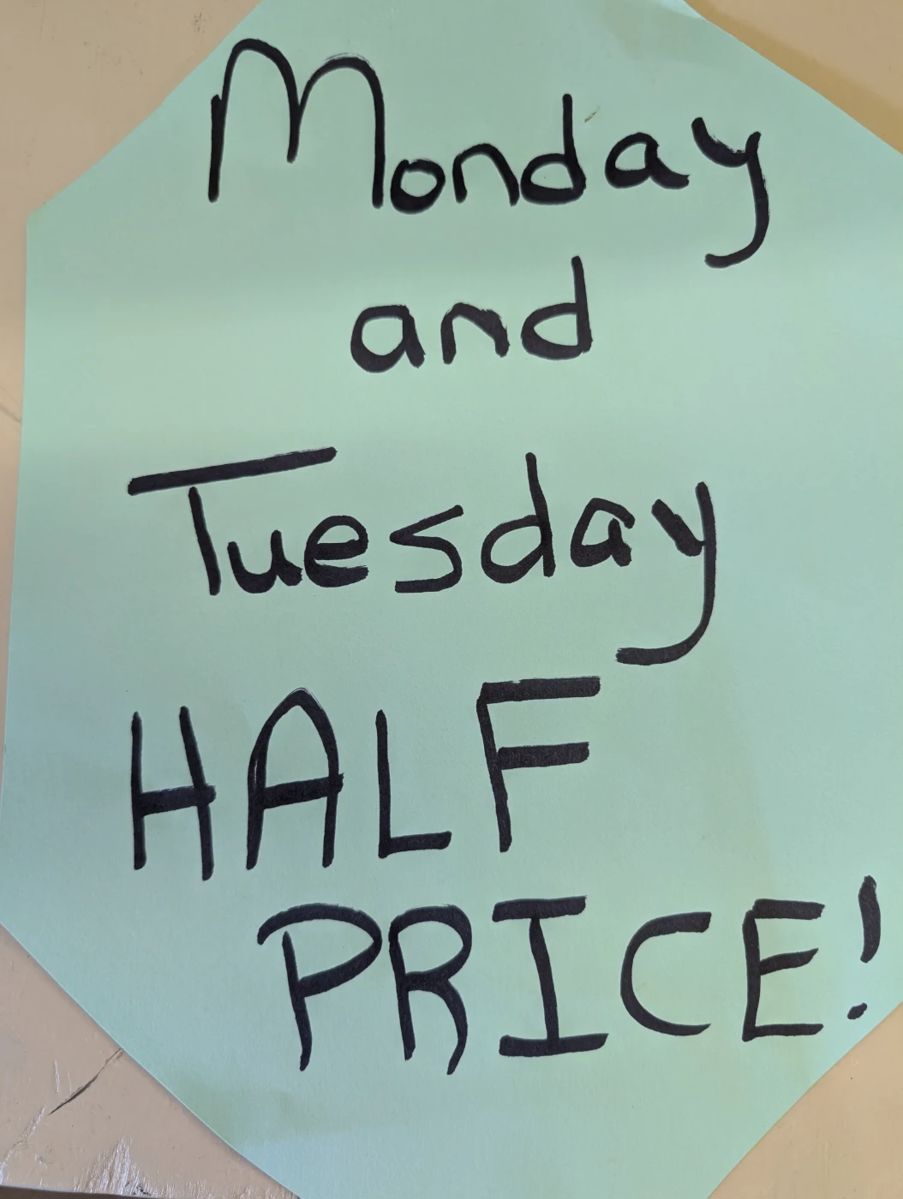 Monday
and
Tuesday
HALF
PRICE!